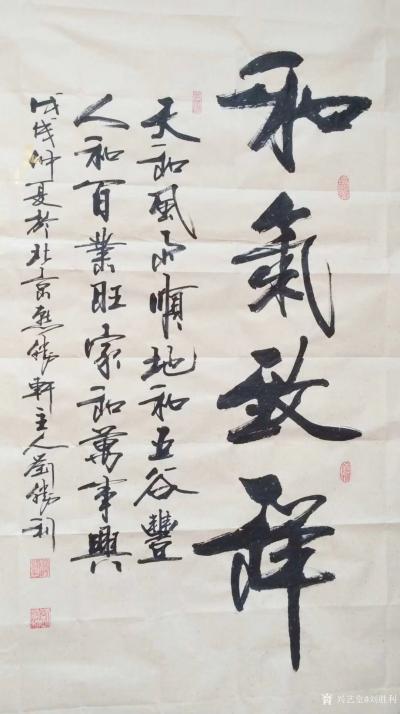 和氣致祥
天和風雨順地和五谷豐
人和百業旺家和萬事興
戊戌仲夏於北京惠勝軒主人劉勝利
兴艺堂@刘胜利